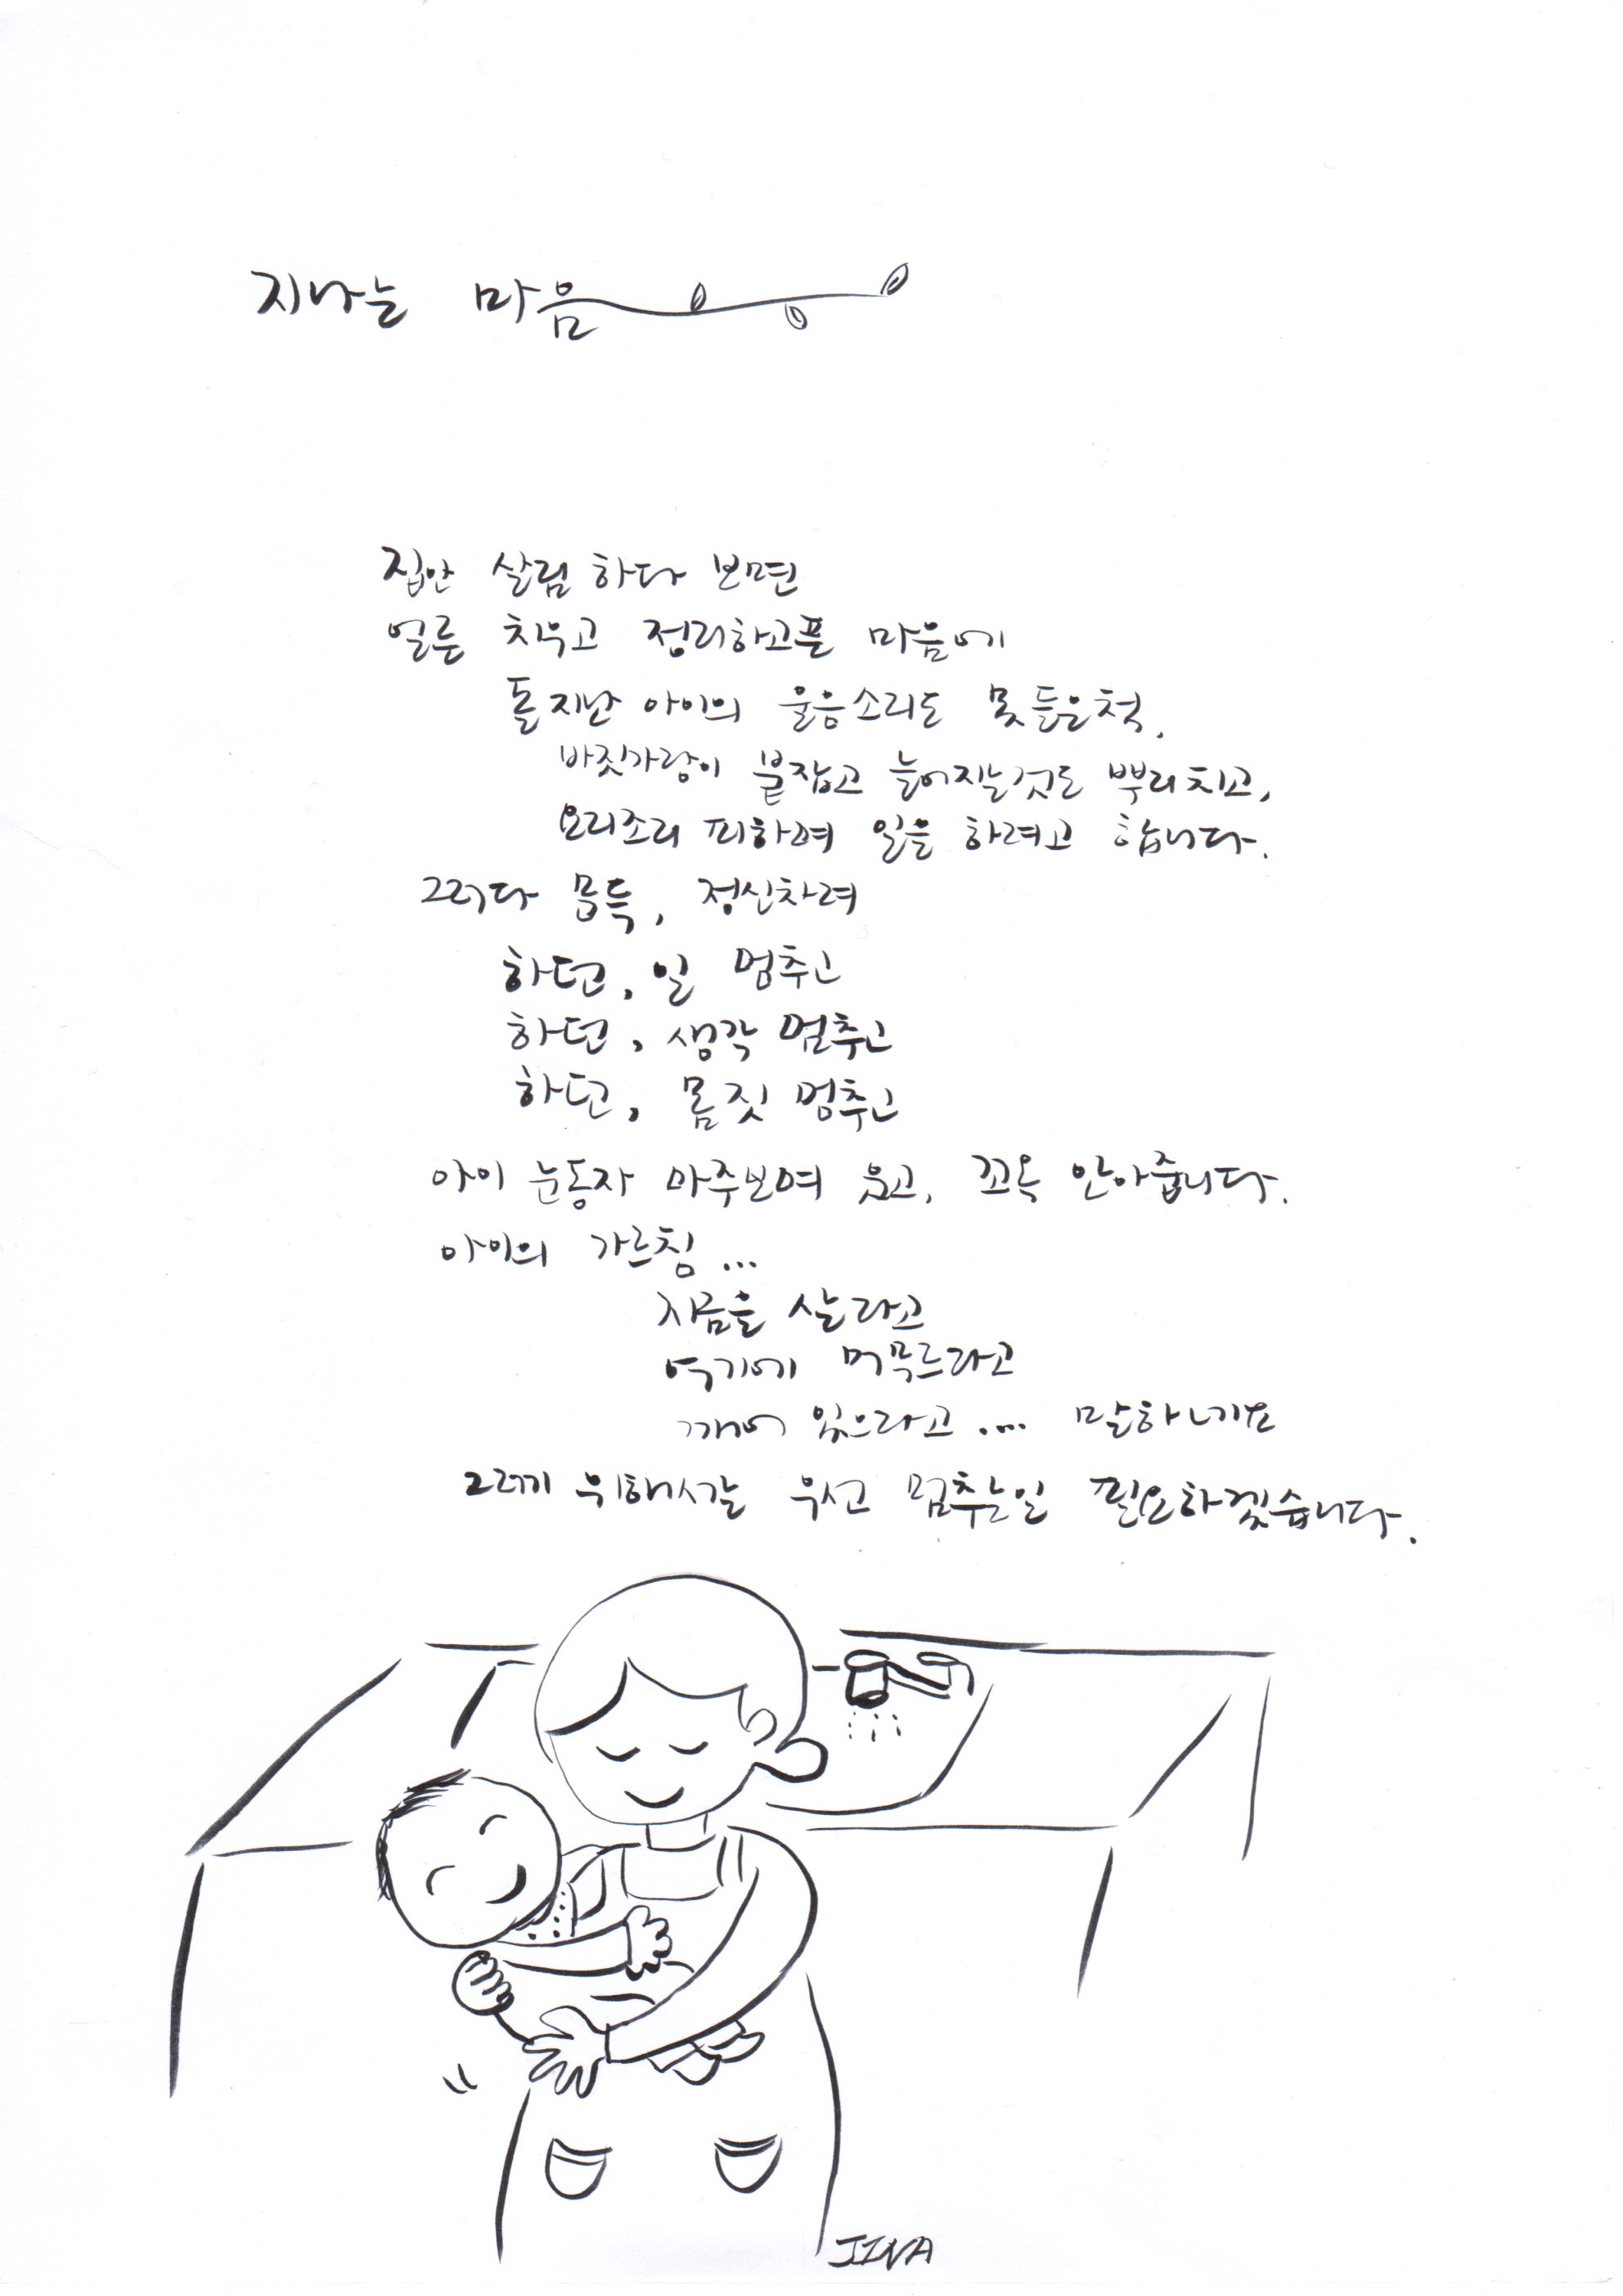 지나는 마음
집안 살림 하다 보면
얼른 치우고 정리하고픈 마음에
돌 지난 아이의 울음소리도 못 들은척,
바짓가랑이 붙잡고 늘어지는것도 뿌리치고,
요리조리 피하며 일을 하려고 합니다.
그러다 문득, 정신차려
하던, 일 멈추고
하던, 생각 멈추고
하던, 몸짓 멈추고
아이 눈동자 마주보며 웃고, 꼬옥 안아줍니다.
아이의 가르침...
지금을 살라고
여기에 머무르라고
깨어 있으라고... 말하네요
위해서는 우선 멈추는일 필요하겠습니다.
JINA